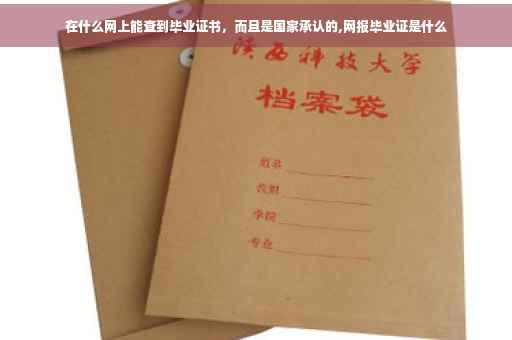 在什么网上能查到毕业证书，而且是国家承认的,网报毕业证是什么
陕西科技大学
档案袋
姓名
学院
专业